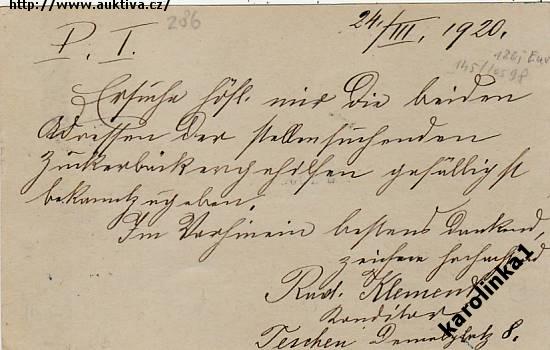 http://www.auktiva.cz/
286
24./III. 1920.
P. T.
Ersuche höfl. mir die beiden
Adressen der stellensuchenden
Zuckerbäckergehilfen gefälligst
bekanntzugeben.
Im Vorhinein bestens dankend,
zeichne hochachtend
Rud. Klement
Konditor
Teschen 8.
karolinka1